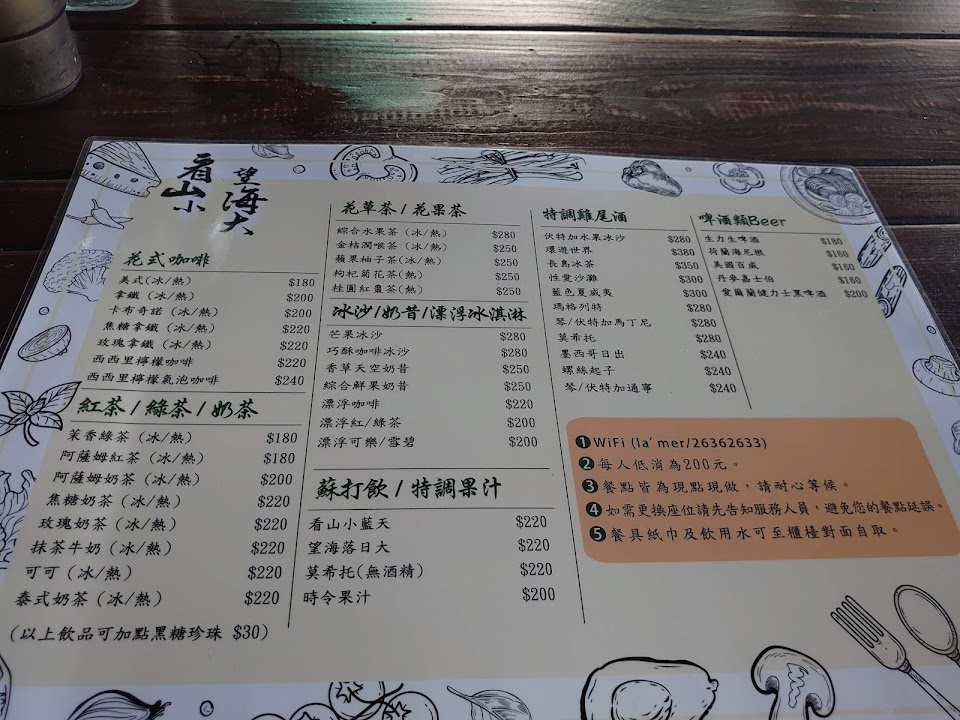 看山小
望海大
花式咖啡
美式(冰/熱) $180
拿鐵 (冰/熱) $200
卡布奇諾 (冰/熱) $200
焦糖拿鐵 (冰/熱) $220
玫瑰拿鐵 (冰/熱) $220
西西里檸檬咖啡 $220
西西里檸檬氣泡咖啡 $240
紅茶/綠茶/奶茶
茉香綠茶 (冰/熱) $180
阿薩姆紅茶 (冰/熱) $180
阿薩姆奶茶 (冰/熱) $200
焦糖奶茶 (冰/熱) $220
玫瑰奶茶 (冰/熱) $220
抹茶牛奶 (冰/熱) $220
可可 (冰/熱) $220
泰式奶茶 (冰/熱) $220
(以上飲品可加點黑糖珍珠 $30)
花草茶/花果茶
綜合水果茶 (冰/熱) $280
金桔潤喉茶 (冰/熱) $250
蘋果柚子茶(冰/熱) $250
枸杞菊花茶(熱) $250
桂圓紅棗茶(熱) $250
冰沙/奶昔/漂浮冰淇淋
芒果冰沙 $280
巧酥咖啡冰沙 $280
香草天空奶昔 $250
綜合鮮果奶昔 $250
漂浮咖啡 $220
漂浮紅/綠茶 $200
漂浮可樂/雪碧 $200
蘇打飲/特調果汁
看山小藍天 $220
望海落日大 $220
莫希托(無酒精) $220
時令果汁 $200
特調雞尾酒
伏特加水果冰沙 $280
環遊世界 $380
長島冰茶 $350
性愛沙灘 $300
藍色夏威夷 $300
瑪格列特 $280
琴/伏特加馬丁尼 $280
莫希托 $280
墨西哥日出 $240
螺絲起子 $240
琴/伏特加通寧 $240
啤酒類Beer
生力生啤酒 $180
荷蘭海尼根 $160
美國百威 $160
丹麥嘉士伯 $160
愛爾蘭健力士黑啤酒 $200
1 WiFi (la'mer/26362633)
2 每人低消為200元。
3 餐點皆為現點現做，請耐心等候。
4 如需更換座位請先告知服務人員，避免您的餐點延誤。
5 餐具紙巾及飲用水可至櫃檯對面自取。